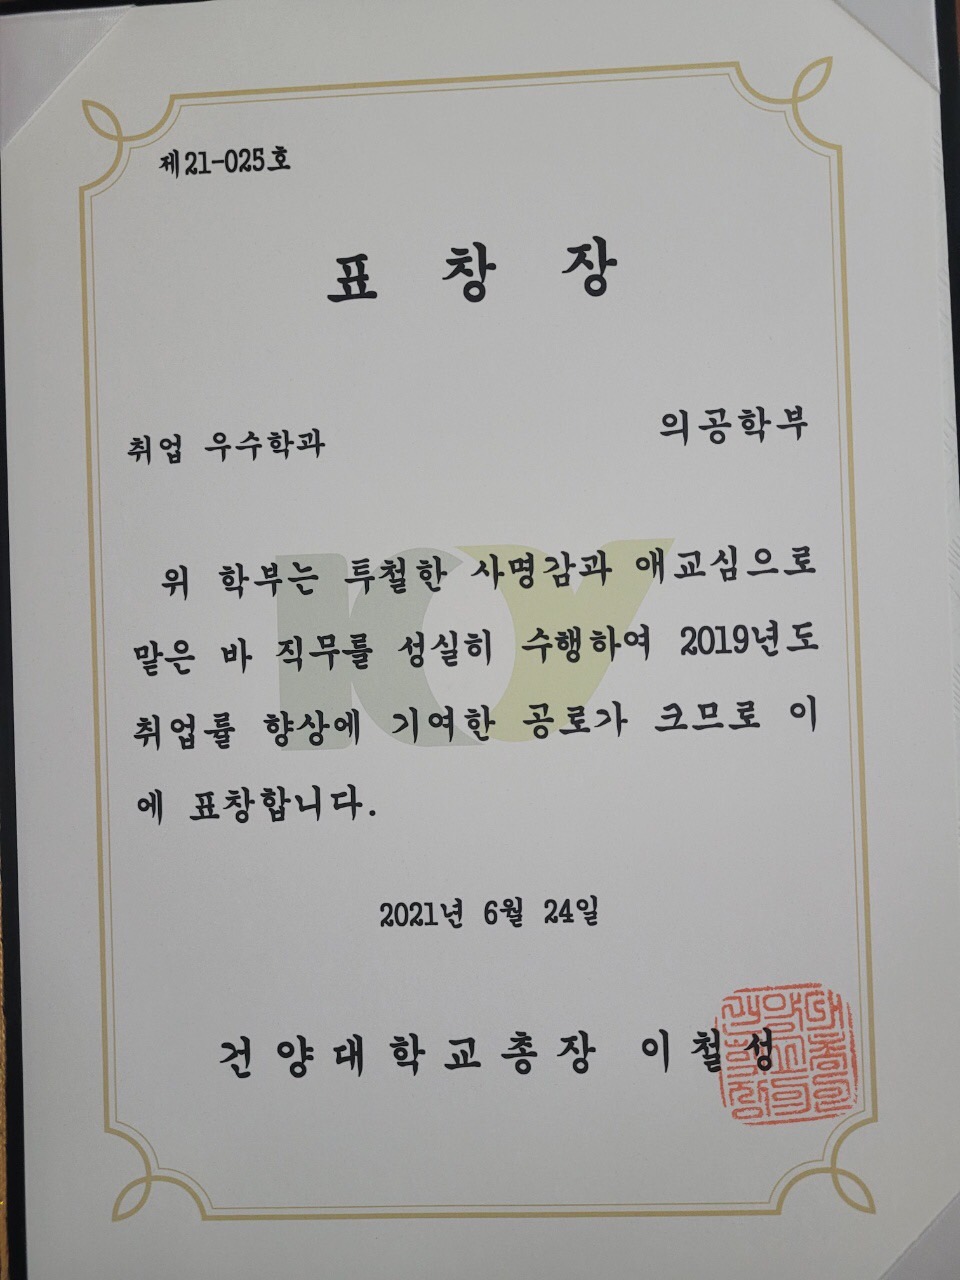 제21-025호
표 창 장
취업 우수학과 의공학부
위 학부는 투철한 사명감과 애교심으로
맡은 바 직무를 성실히 수행하여 2019년도
취업률 향상에 기여한 공로가 크므로 이
에 표창합니다.
2021년 6월 24일
건양대학교총장 이철성